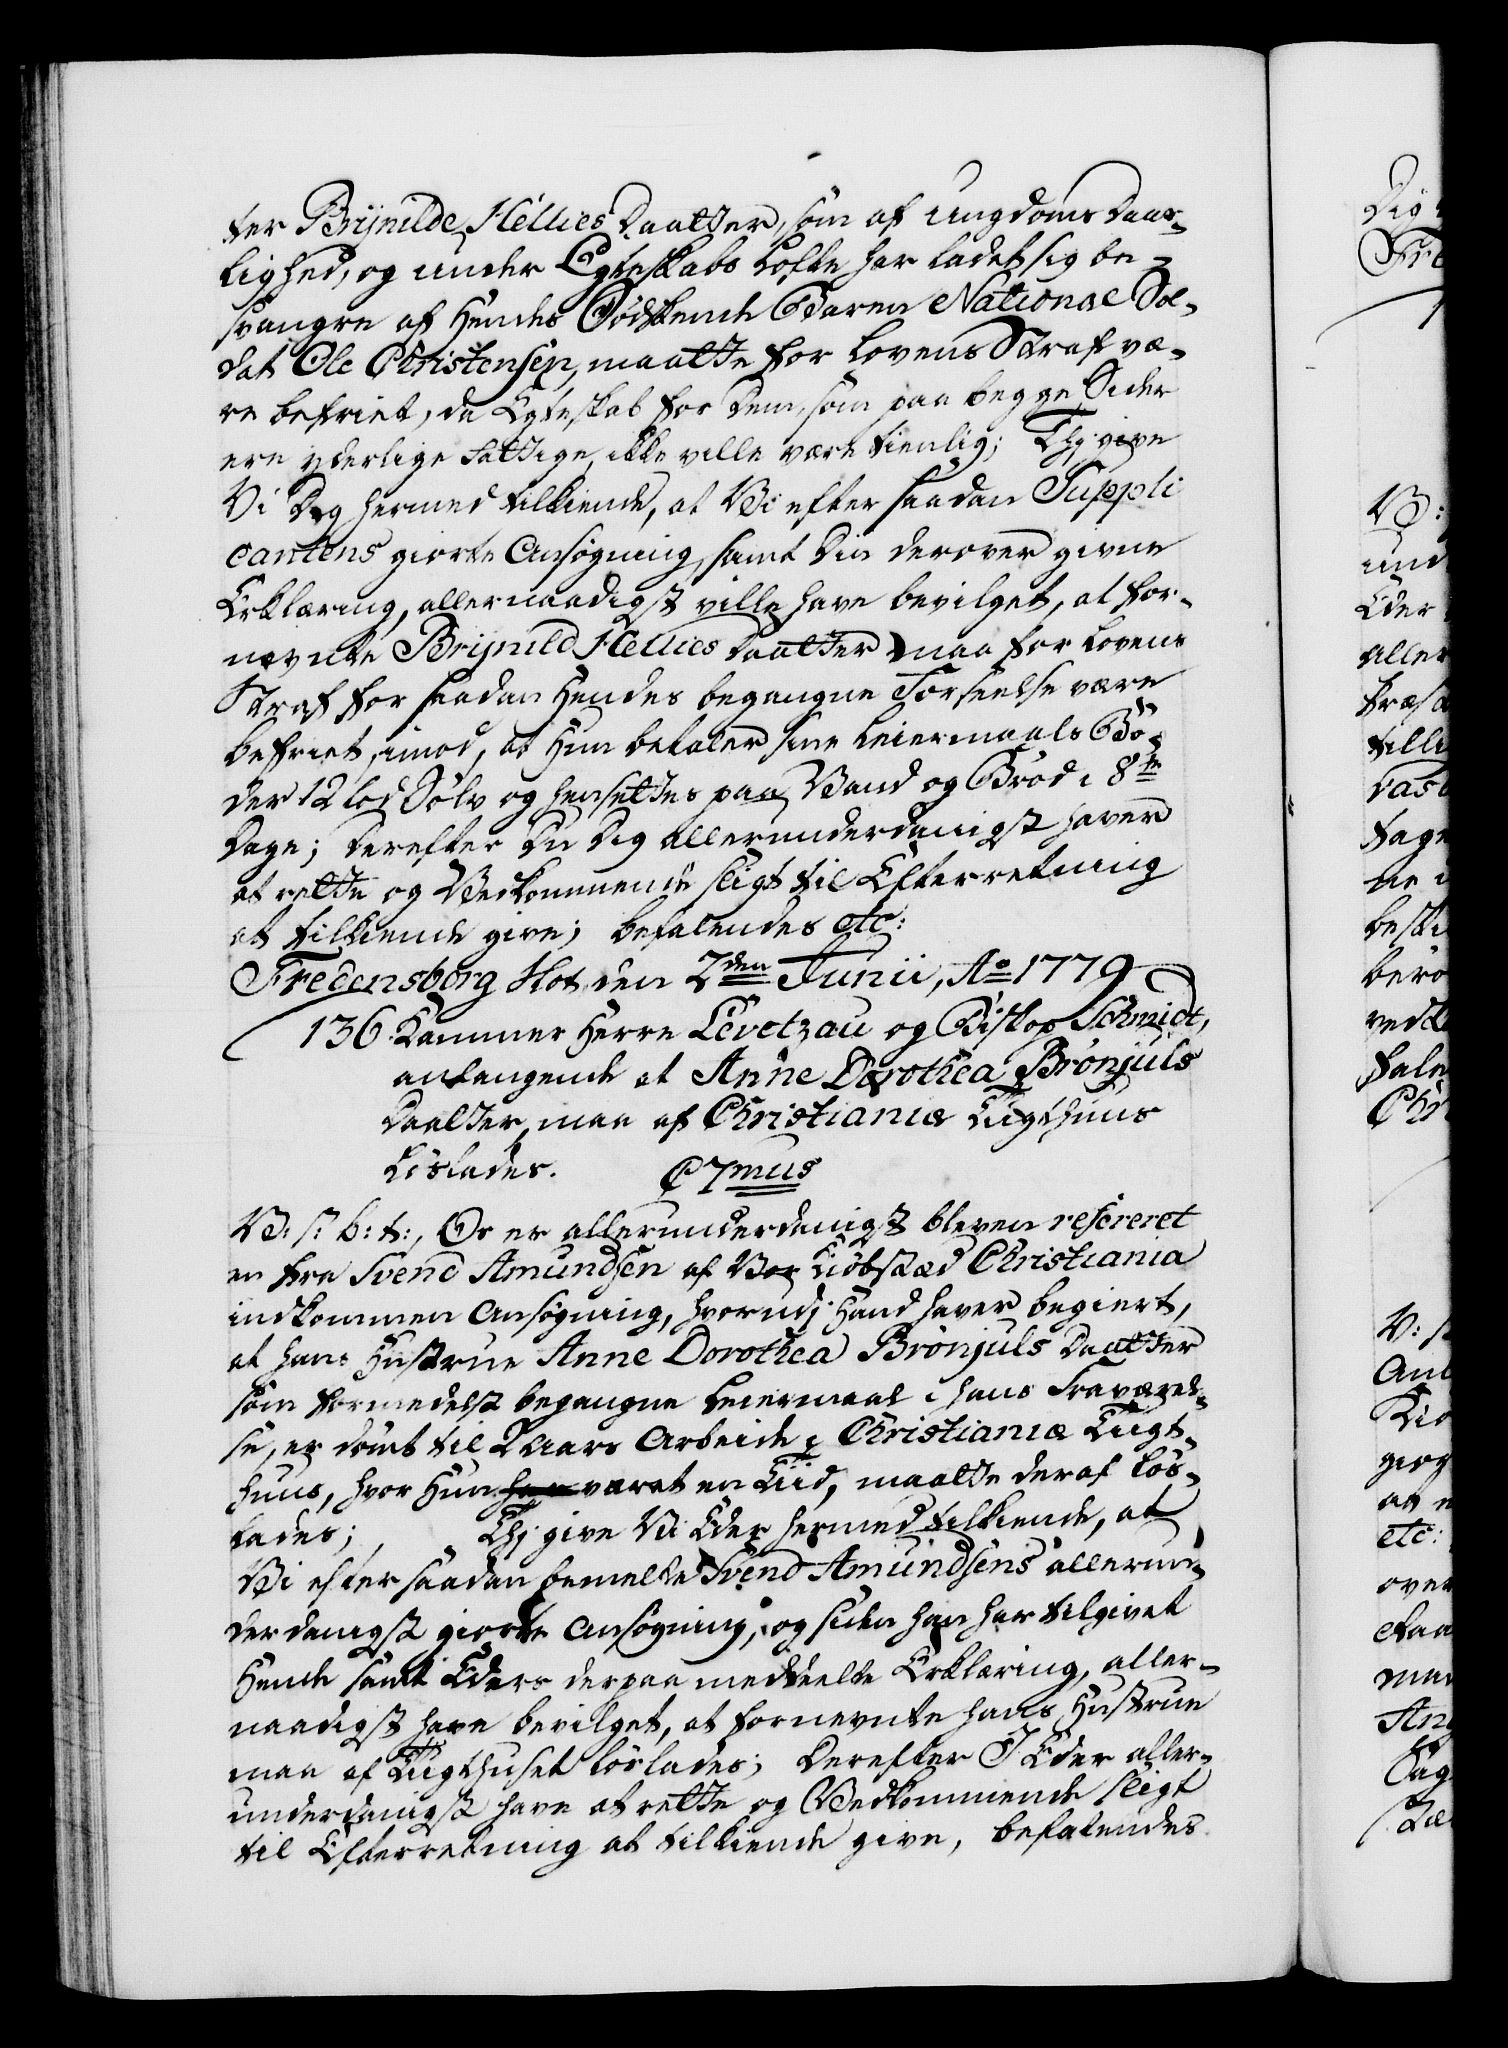 ter Brijnilde Hellies Daatter, som af ungdoms Daar-
lighed, og under Egteskabs Løfte har ladet sig be-
svangre af Hendes Sødskende Baren National Sol-
dat Ole Christensen, maatte for Lovens Straf væ-
re befriet, da Egteskab for dem, som paa begge Sider
ere yderlige fattige, ikke ville være tienlig; Thj give
Vi Dig hermed tilkiende, at Vi efter saadan Suppli
cantens giorte Ansøgning, samt Din derover givne
Erklæring, allernaadigst ville have bevilget, at for-
nevnte Brijnild Hellies Daatter maa for Lovens
Straf for saadan Hendes begangne Forseelse være
befriet, imod, at Hun betaler sine Leiermaals Bö-
der 12 Lod Sølv og hensettes paa Vand og Brød i 8te
Dage; Derefter Du Dig allerunderdanigst haver
at rette og Vedkommende sligt til Efterretning
at tilkiende give; befalendes etc:
Fredensborg Slot den 2den Junii, Ao 1779
136. Kammer Herre Levetzau og Biskop Schmidt,
anlangende at Anne Dorothea Brönjuls
Daatter, maa af Christianiæ Tugthuus
Löslades. C 7mus
V: s: b: t:, Os er allerunderdanigst bleven refereret
en fra Svend Amundsen af Vor Kiöbstæd Christiania
indkommen Ansøgning, hvorudj Hand haver begiert,
at hans Hustrue Anne Dorothea Brönjuls Daatter
som formedelst begangne Leiermaal i hans Fraværel-
se, er dömt til 2 Aars Arbeide i Christianiæ Tugt-
huus, hvor Hun har været en Tiid, maatte deraf lös-
lades; Thj give Vi Eder hermed tilkiende, at
Vi efter saadan bemelte Svend Amundsens allerun-
derdanigst giorte Ansøgning, og siden han har tilgivet
Hende samt Eders derpaa meddeelte Erklæring, aller-
naadigst have bevilget, at fornevnte hans Hustrue
maa af Tugthuset löslades; Derefter I Eder aller-
underdanigst have at rette og Vedkommende sligt
til Efterretning at tilkiende give, befalendes